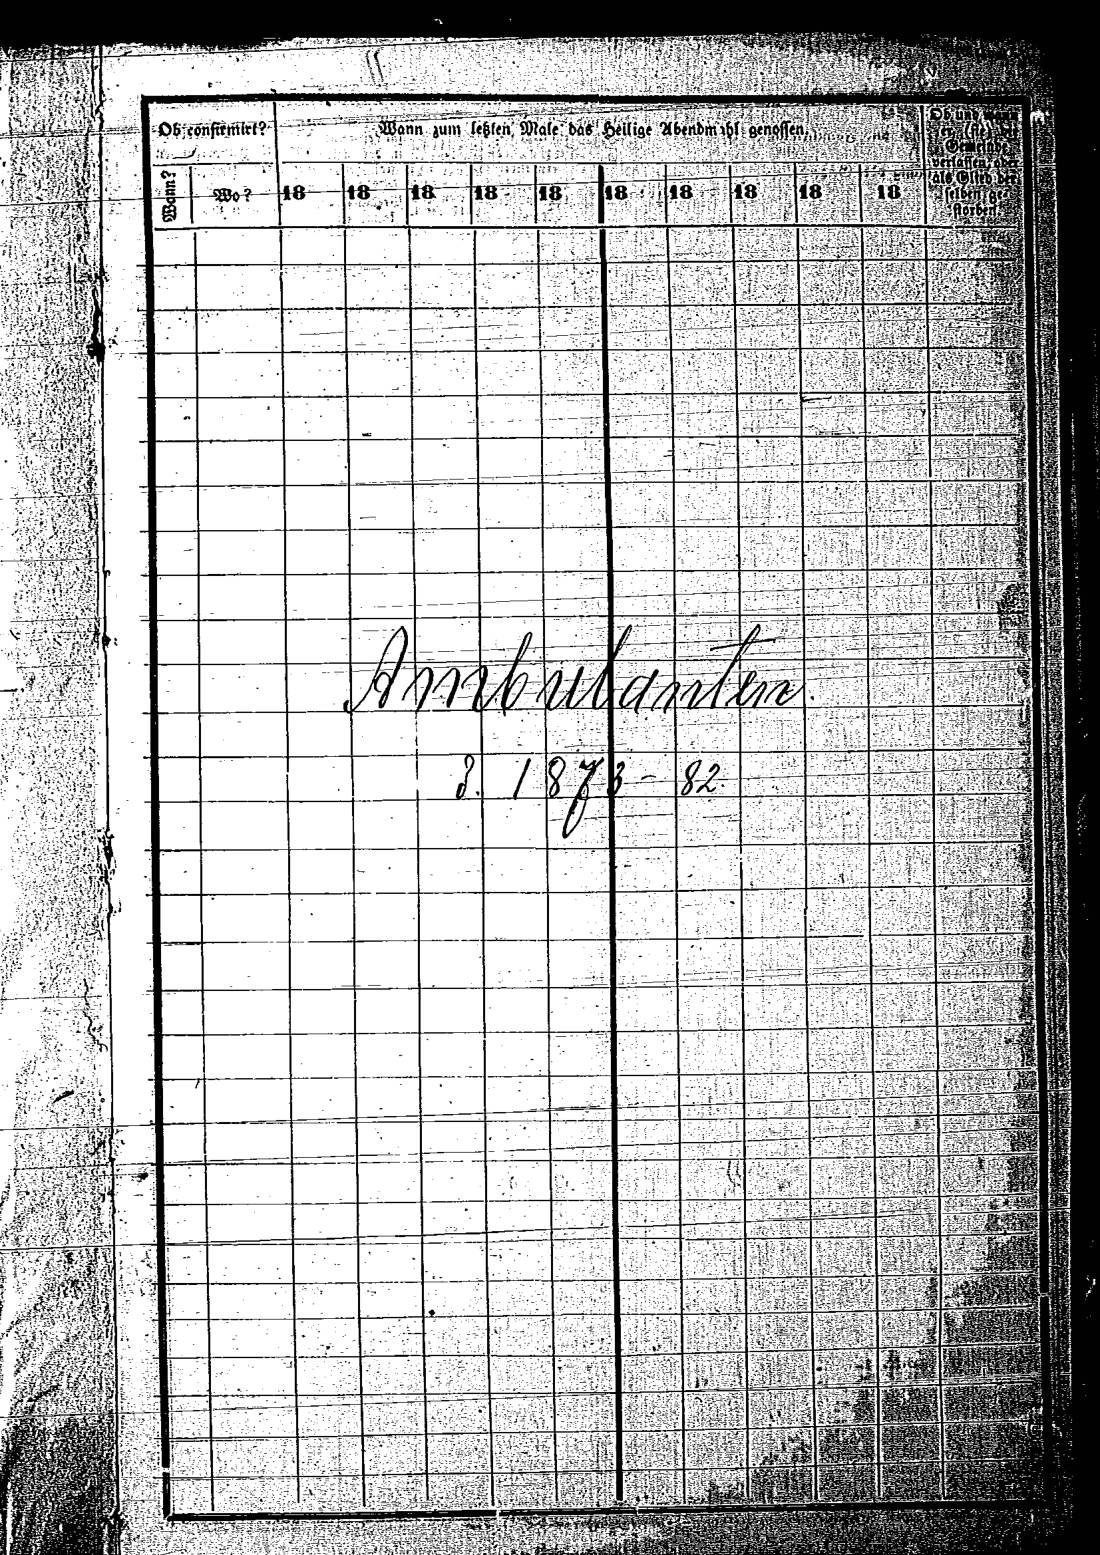 Ob confirmirt?
Wann zum letzten Male das Heilige Abendmahl genossen.
Ob und wann er (sie) die Gemeinde verlassen, oder als Glied derselben gestorben.
Wann?
Wo?
18 18 18 18 18 18 18 18 18 18
Ambulanten
d. 1873-82.